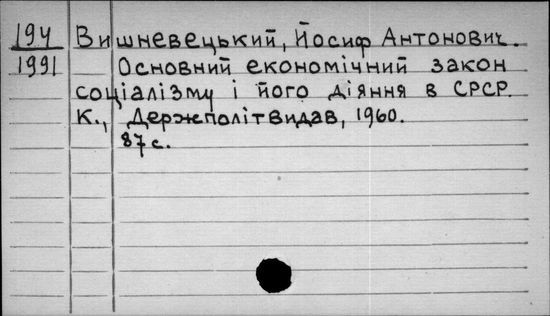 194 Вишневецький, Йосиф Антонович.
1991 Основний економічний закон
соціалізму і його діяння в СРСР.
К., Держполітвидав, 1960.
87 с.